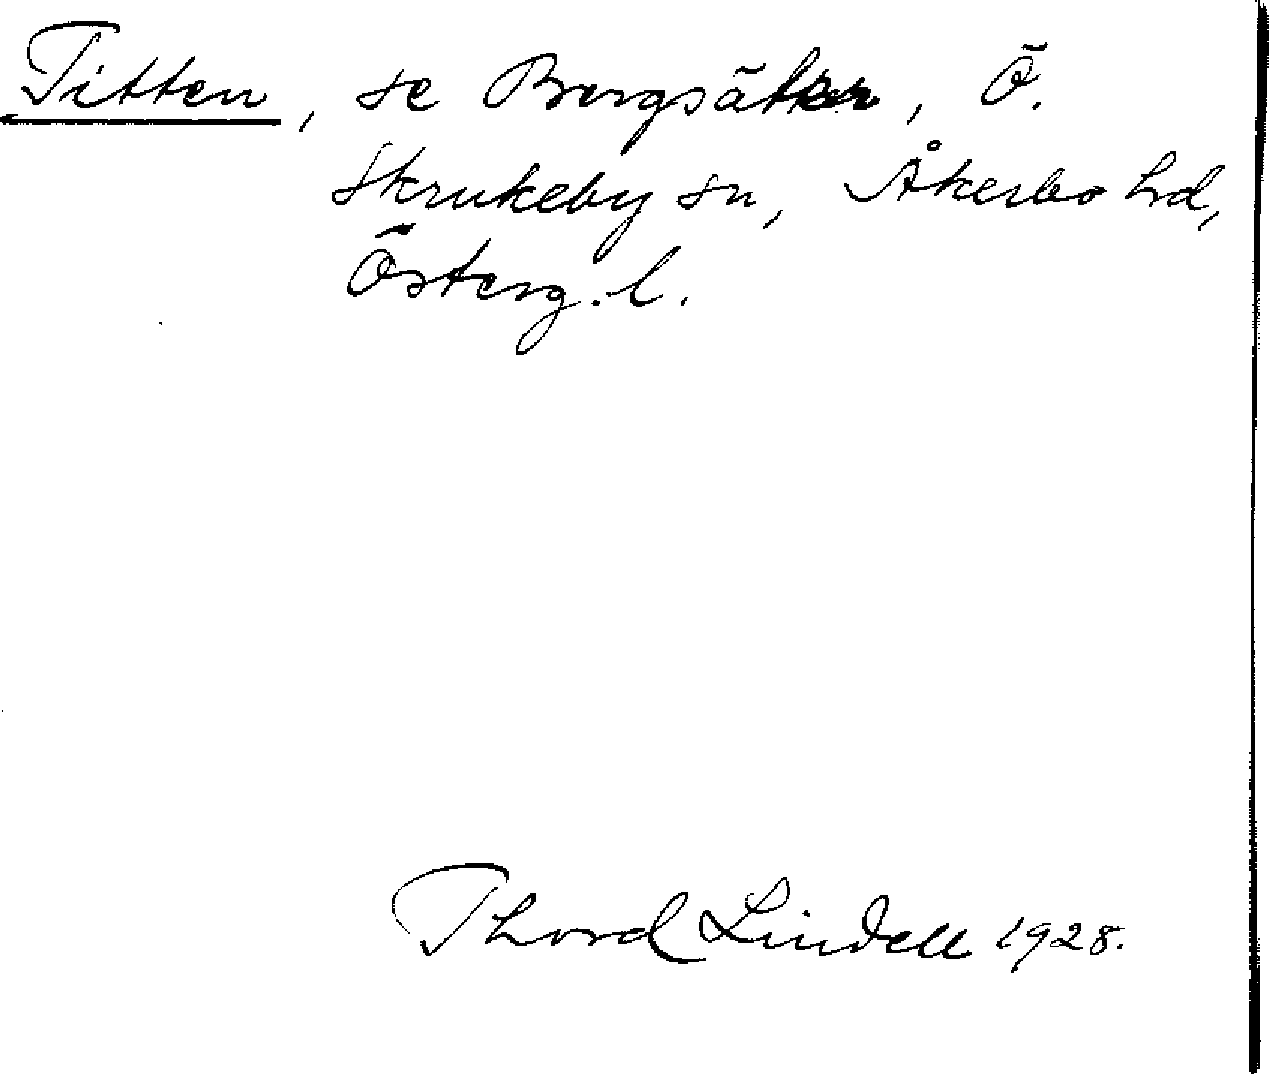 Titten, se Bergsäter, Ö.
Skrukeby sn, Åkerbo hd,
Österg. l.
Thord Lindell 1928.